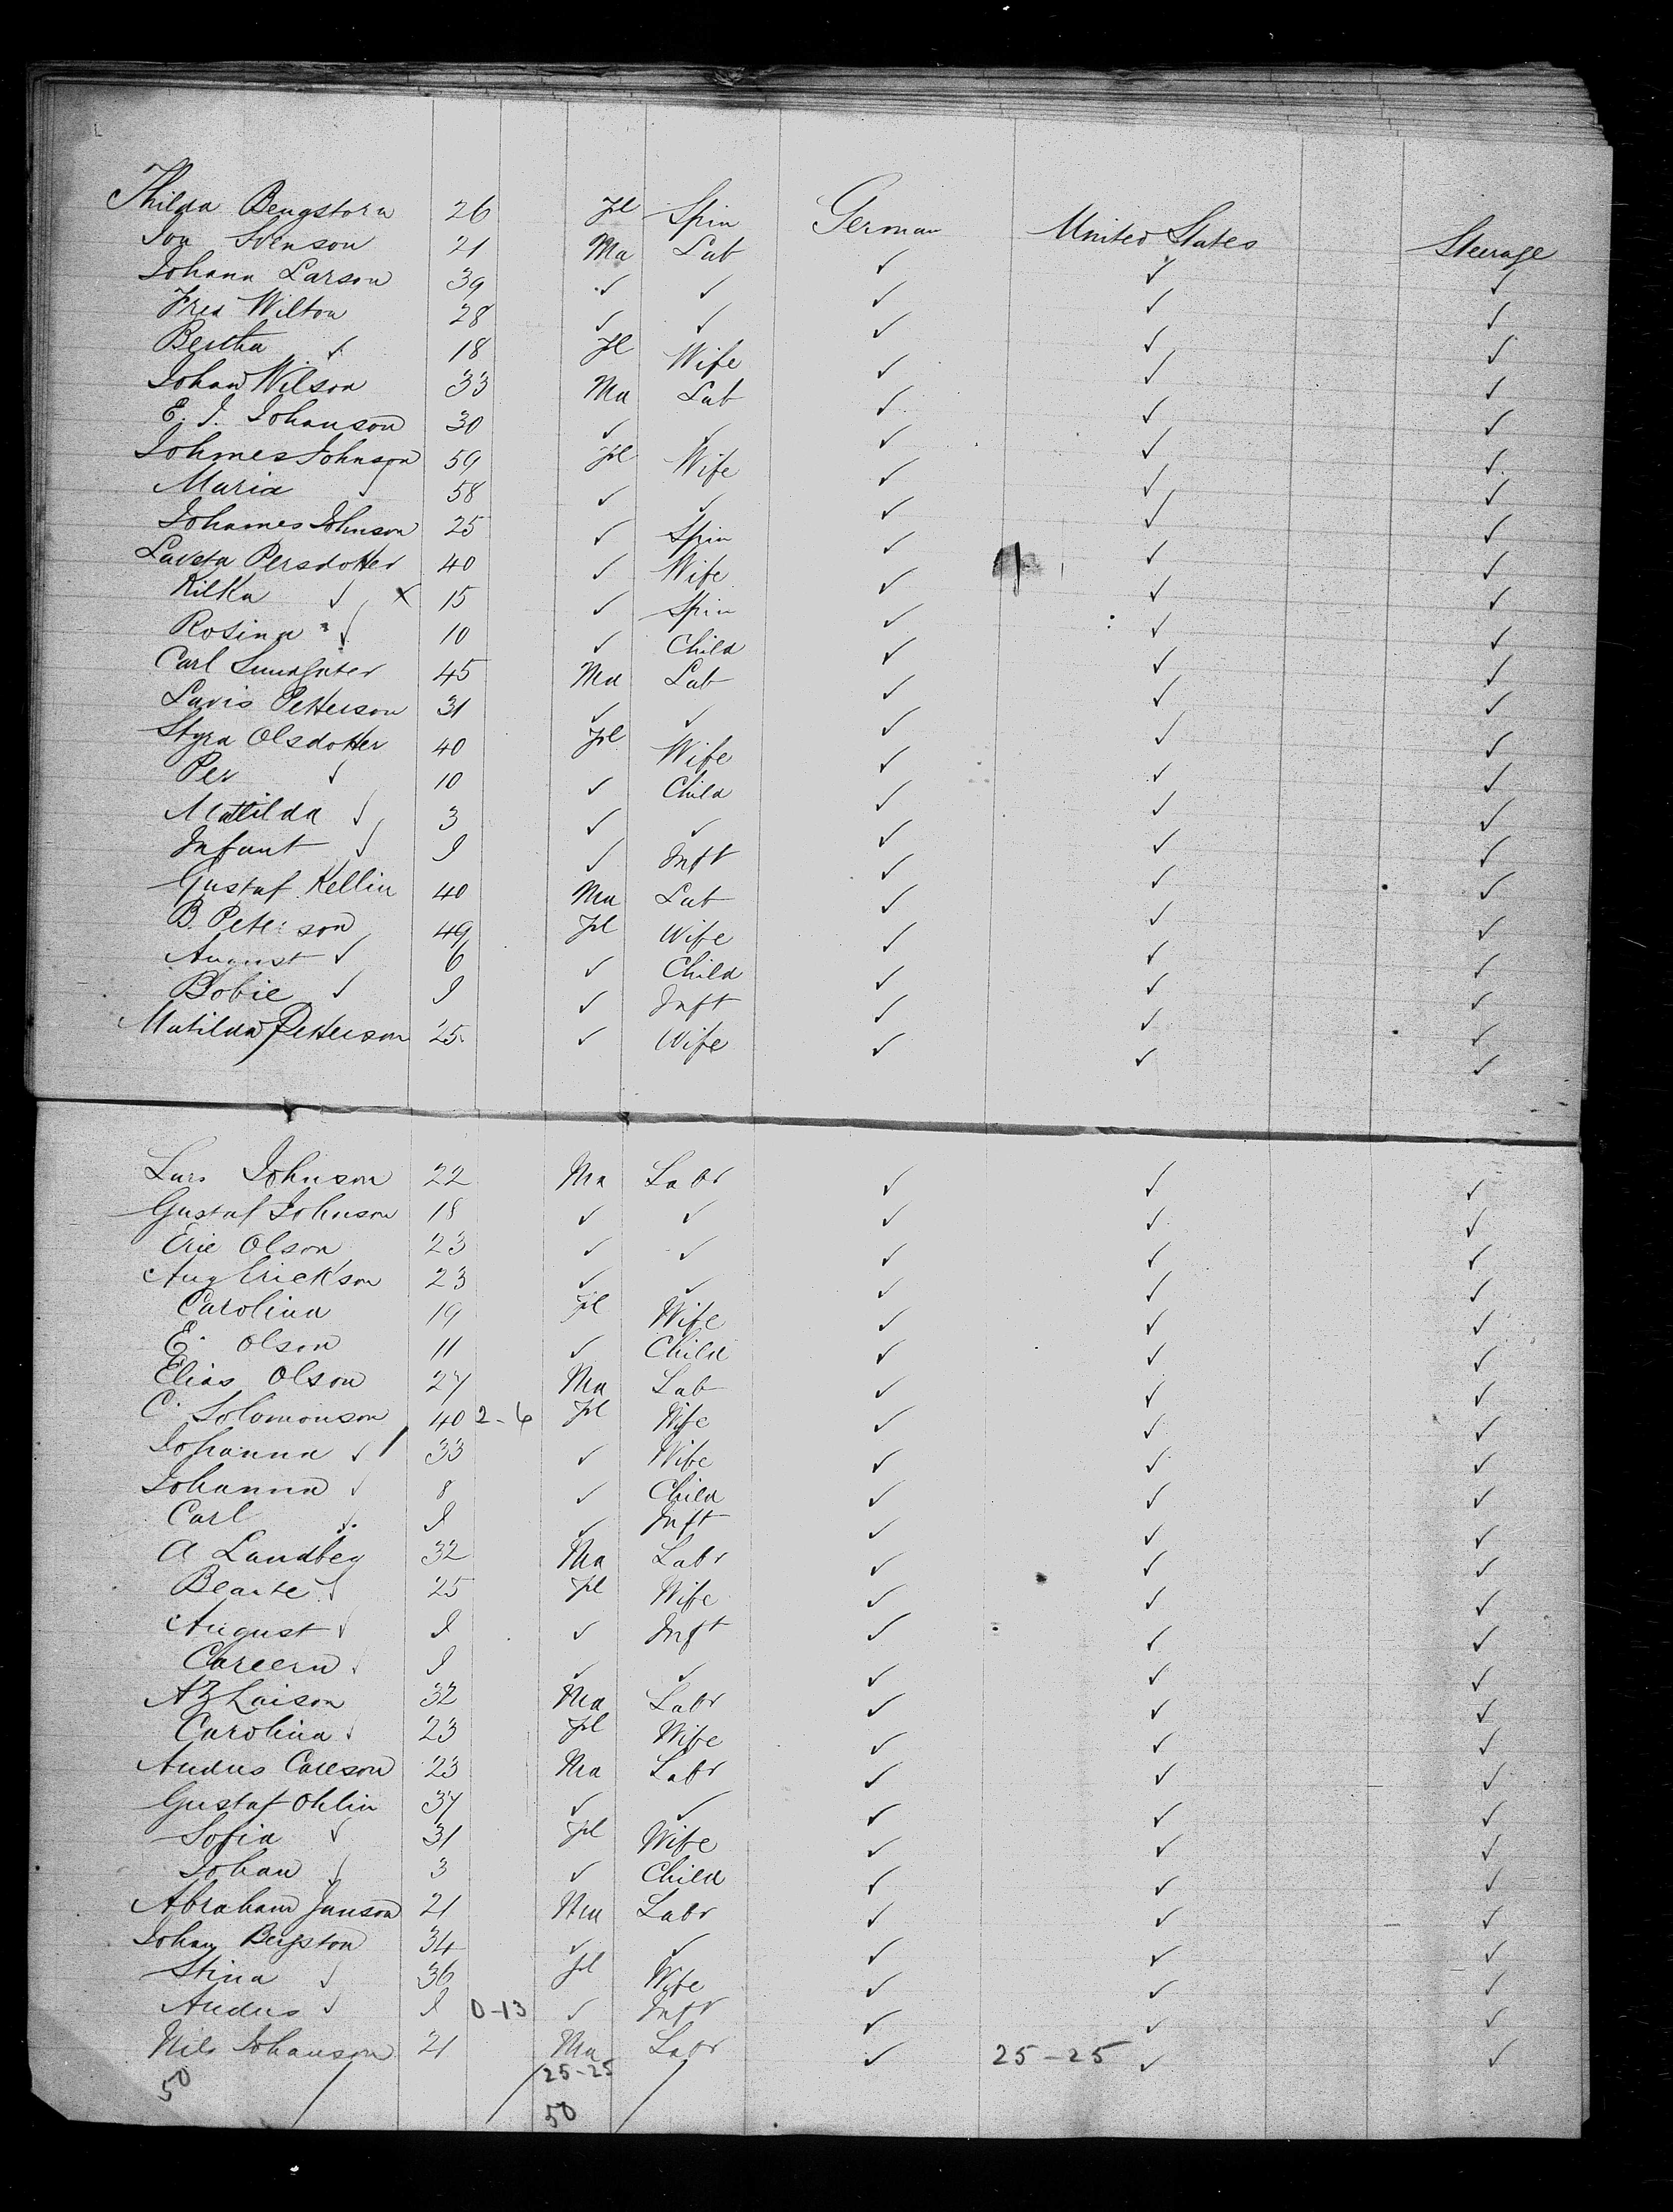 Thilda Bengstorn 26 Fl Spin German United States Steerage
Jon Svenson 21 Ma Lab ✓ ✓ ✓
Johann Larson 39 ✓ ✓ ✓ ✓ ✓
Fred Wilton 28 ✓ ✓ ✓ ✓ ✓
Bertha ✓ 18 Fl Wife ✓ ✓ ✓
Johan Wilson 33 Ma Lab ✓ ✓ ✓
E. J. Johanson 30 ✓ ✓ ✓ ✓ ✓
Johnes Johnson 59 Fl Wife ✓ ✓ ✓
Maria ✓ 58 ✓ ✓ ✓ ✓ ✓
Johannes Johnson 25 ✓ Spin ✓ ✓ ✓
Persdotter 40 ✓ Wife ✓ ✓ ✓
Kilka ✓ x 15 ✓ Spin ✓ ✓ ✓
Rosina ✓ 10 ✓ Child ✓ ✓ ✓
Carl 45 Ma Lab ✓ ✓ ✓
Lavis Petterson 31 ✓ ✓ ✓ ✓ ✓
Styra Olsdotter 40 Fl Wife ✓ ✓ ✓
Per ✓ 10 ✓ Child ✓ ✓ ✓
Matilda ✓ 3 ✓ ✓ ✓ ✓ ✓
Infant ✓ I ✓ Inft ✓ ✓ ✓
Gustaf Kellin 40 Ma Lab ✓ ✓ ✓
B. Peterson 49 Fl Wife ✓ ✓ ✓
August ✓ 6 ✓ Child ✓ ✓ ✓
Bobie ✓ I ✓ Inft ✓ ✓ ✓
Matilda Petterson 25 ✓ Wife ✓ ✓ ✓
Lars Johnson 22 Ma Labr ✓ ✓ ✓
Gustaf Johnson 18 ✓ ✓ ✓ ✓ ✓
Eric Olson 23 ✓ ✓ ✓ ✓ ✓
Aug Erickson 23 ✓ ✓ ✓ ✓ ✓
Carolina 19 Fl Wife ✓ ✓ ✓
E. Olson 11 ✓ Child ✓ ✓ ✓
Elias Olson 27 Ma Lab ✓ ✓ ✓
C. Solomonson 40 2-6 Fl Wife ✓ ✓ ✓
Johanna ✓ 33 ✓ Wife ✓ ✓ ✓
Johanna ✓ 8 ✓ Child ✓ ✓ ✓
Carl ✓ I ✓ Inft ✓ ✓ ✓
A Landbeg 32 Ma Labr ✓ ✓ ✓
Bearte ✓ 25 Fl Wife ✓ ✓ ✓
August ✓ I ✓ Inft ✓ ✓ ✓
Careern ✓ I ✓ ✓ ✓ ✓ ✓
A Z Laison 32 Ma Labr ✓ ✓ ✓
Carolina ✓ 23 Fl Wife ✓ ✓ ✓
Andus Careson 23 Ma Labr ✓ ✓ ✓
Gustaf Ohlin 37 ✓ ✓ ✓ ✓ ✓
Sofia ✓ 31 Fl Wife ✓ ✓ ✓
Johan ✓ 3 ✓ Child ✓ ✓ ✓
Abraham Janson 21 Ma Labr ✓ ✓ ✓
Johan Bergston 34 ✓ ✓ ✓ ✓ ✓
Stina ✓ 36 Fl Wife ✓ ✓ ✓
Andus ✓ I 0-13 ✓ Inft ✓ ✓ ✓
Nils Johanson 21 Ma Labr ✓ 25-25 ✓ ✓
50 25-25
50